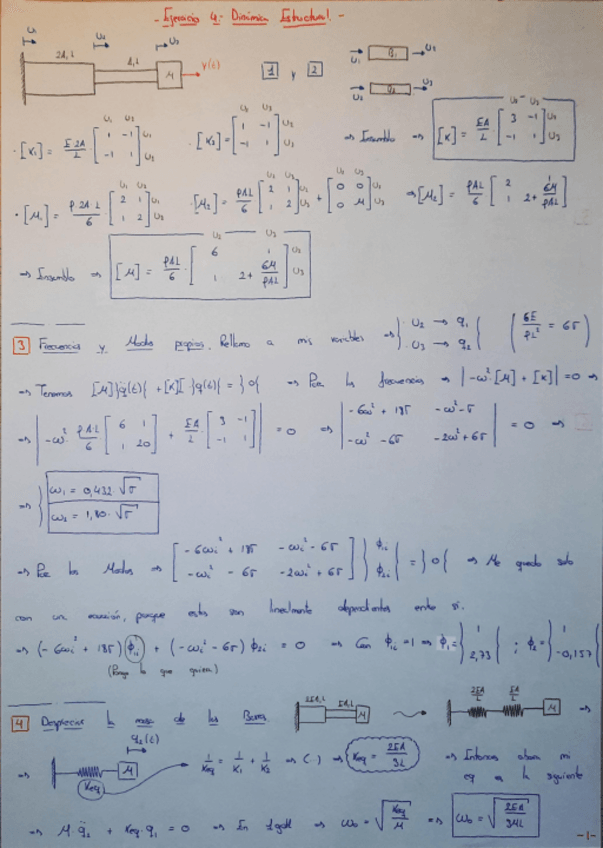 - Ejercicio 4: Dinámica Estructural. -
U₁ U₂ U₃
2A, L A, L M Y(t) 1 y 2 U₁ 1 U₂
U₂ 2 U₃
· [K₁] = E·2A/L · [1 -1; -1 1] · [K₂] = [1 -1; -1 1] ⇒ Ensamblo ⇒ [K] = EA/L · [3 -1; -1 1]
· [M₁] = ρ·2A·L/6 [2 1; 1 2] · [M₂] = ρAL/6 [2 1; 1 2] + [0 0; 0 M] ⇒ [M₂] = ρAL/6 [2 1; 1 2+6M/ρAL]
⇒ Ensamblo ⇒ [M] = ρAL/6 · [6 1; 1 2+6M/ρAL]
3 Frecuencias y Modos propios. Rellamo a mis variables ⇒ } U₂ → q₁ U₃ → q₂ { (6E/ρL² = 6σ)
⇒ Tenemos [M]}q̈(t){ + [K]}q(t){ = }0{ ⇒ Para las frecuencias ⇒ |-ω²[M] + [K]| = 0 ⇒
⇒ |-ω² · ρA·L/6 [6 1; 1 20] + EA/L · [3 -1; -1 1]| = 0 ⇒ |-6ω² + 18σ -ω² - σ; -ω² - 6σ -2ω² + 6σ| = 0 ⇒
⇒ } ω₁ = 0,432 · √σ
ω₂ = 1,80 · √σ
⇒ Para los Modos ⇒ [-6ωᵢ² + 18σ -ωᵢ² - 6σ; -ωᵢ² - 6σ -2ωᵢ² + 6σ] } ϕ₁ᵢ ϕ₂ᵢ { = }0{ ⇒ Me quedo solo
con una ecuación, porque estas son linealmente dependientes entre sí.
⇒ (-6ωᵢ² + 18σ) ϕ₁ᵢ + (-ωᵢ² - 6σ) ϕ₂ᵢ = 0 ⇒ Con ϕ₁ᵢ = 1 ⇒ ϕ₁ = } 1 2,73 } ; ϕ₂ = } 1 -0,157 {
(Pongo lo que quiera)
4 Despreciar la masa de las Barras. 2EA, L EA, L M 2EA/L EA/L M ⇒
q₂(t)
⇒ Keq M 1/Keq = 1/K₁ + 1/K₂ ⇒ (·) ⇒ Keq = 2EA/3L ⇒ Entonces ahora mi
eq es la siguiente
⇒ M·q̈₂ + Keq·q₁ = 0 ⇒ En 1gdl ⇒ ω₀ = √(Keq/M) ⇒ ω₀ = √(2EA/3ML)
-1-